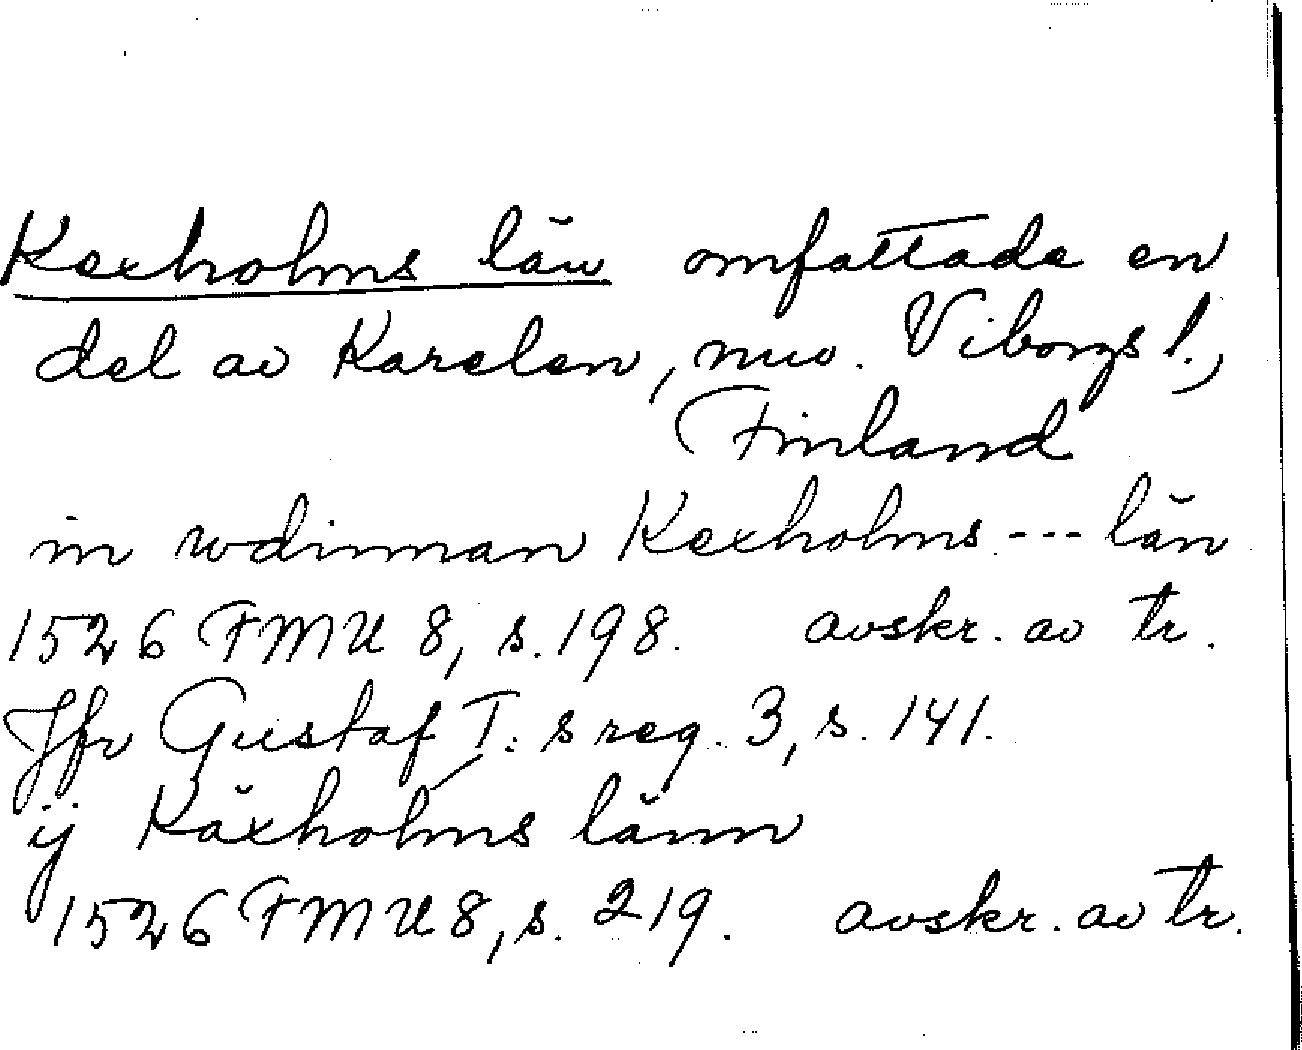 Kexholms län omfattade en
del av Karelen, nuv. Viborgs l.,
Finland
in wdinman Kexholms --- län
1526 FMU 8, s. 198. avskr. av tr.
Jfr Gustaf I: s reg. 3, s. 141.
ij Käxholms länn
1526 FMU 8, s. 219. avskr. av tr.